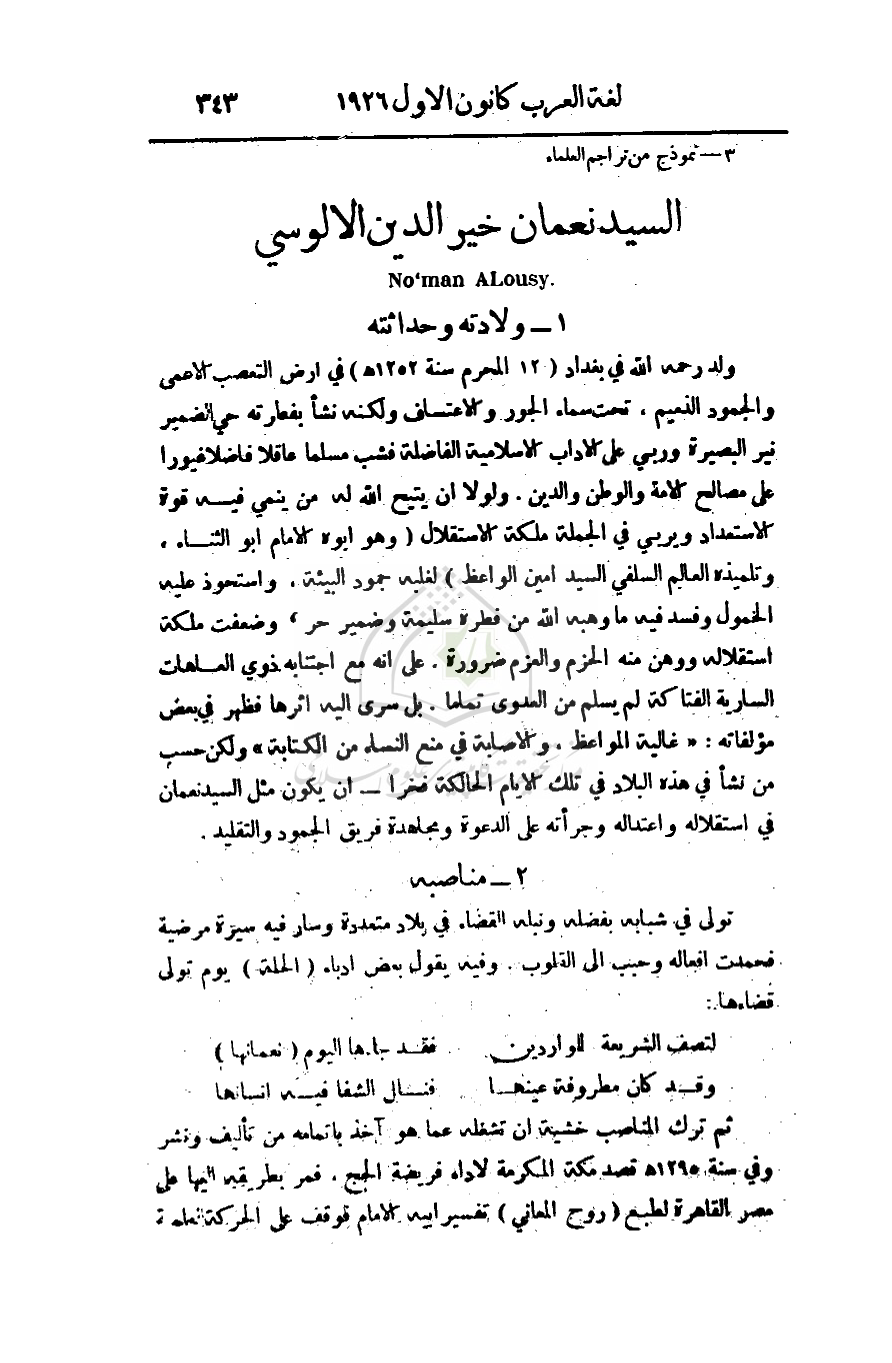 لغة العرب كانون الاول ١٩٢٦ ٣٤٣
٣ — نموذج من تراجم العلماء
السيد نعمان خير الدين الالوسي
No‘man ALousy.
١ — ولادته وحداثته
ولد رحمه الله في بغداد ( ١٢ المحرم سنة ١٢٥٢ﻫ ) في ارض التعصب الاعمى
والجمود الذميم ، تحت سماء الجور والاعتساف ولكنه نشأ بفطرته حي الضمير
نير البصيرة وربي على الاداب الاسلامية الفاضلة فشب مسلما عاقلا فاضلا غيورا
على مصالح الامة والوطن والدين . ولولا ان يتيح الله له من ينمي فيه قوة
الاستعداد ويربي في الجملة ملكة الاستقلال ( وهو ابوه الامام ابو الثناء ،
وتلميذه العالم السلفي السيد امين الواعظ ) لغلبه جمود البيئة ، واستحوذ عليه
الخمول وفسد فيه ما وهبه الله من فطرة سليمة وضمير حر ، وضعفت ملكة
استقلاله ووهن منه الحزم والعزم ضرورة . على انه مع اجتنابه ذوي العاهات
السارية الفتاكة لم يسلم من العدوى تماما . بل سرى اليه اثرها فظهر في بعض
مؤلفاته : « غالية المواعظ ، والاصابة في منع النساء من الكتابة » ولكن حسب
من نشأ في هذه البلاد في تلك الايام الحالكة فخرا — ان يكون مثل السيد نعمان
في استقلاله واعتداله وجرأته على الدعوة ومجاهدة فريق الجمود والتقليد .
٢ — مناصبه
تولى في شبابه بفضله ونبله القضاء في بلاد متعددة وسار فيه سيرة مرضية
فحمدت افعاله وحبب الى القلوب . وفيه يقول بعض ادباء ( الحلة ) يوم تولى
قضاءها :
لتصف الشريعة للواردين فقد جاءها اليوم ( نعمانها )
وقد كان مطروفة عينها فنال الشفا فيه انسانها
ثم ترك المناصب خشية ان تشغله عما هو آخذ باتمامه من تأليف ونشر
وفي سنة ١٢٩٥ﻫ قصد مكة المكرمة لاداء فريضة الحج ، فمر بطريقه اليها على
مصر القاهرة لطبع ( روح المعاني ) تفسير ابيه الامام فوقف على الحركة